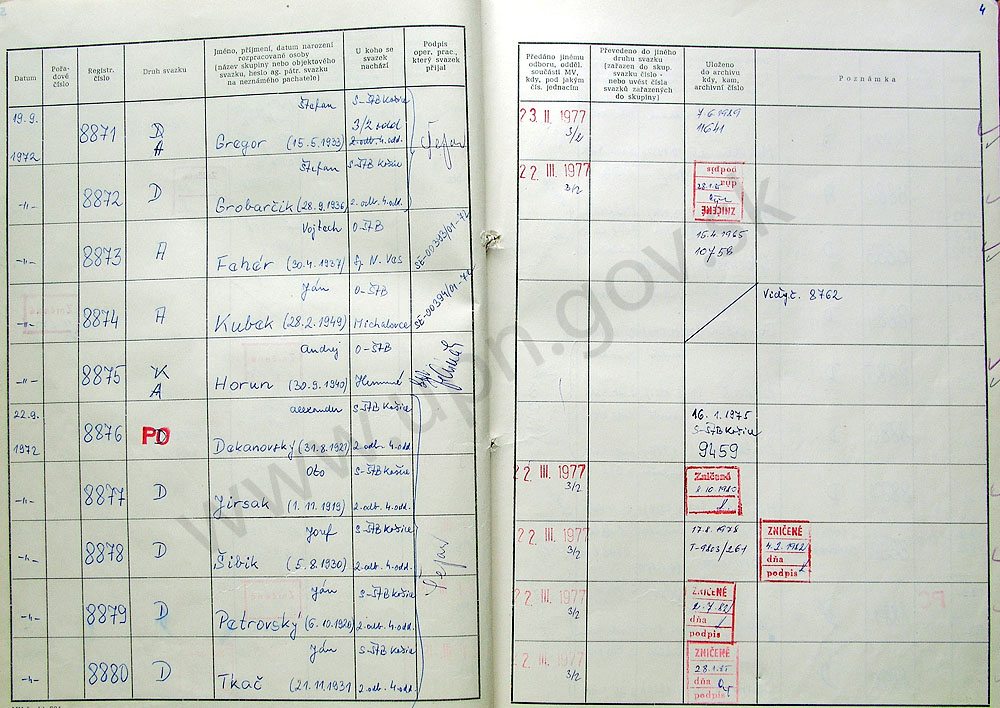 4
Datum
Pořadové číslo
Registr. číslo
Druh svazku
Jméno, příjmení, datum narození
rozpracované osoby
(název skupiny nebo objektového
svazku, heslo ag. pátr. svazku
na neznámého pachatele)
U koho se
svazek
nachází
Podpis
oper. prac.,
který svazek
přijal
Předáno jinému
odboru, odděl.
součásti MV,
kdy, pod jakým
čís. jednacím
Převedeno do jiného
druhu svazku
(zařazen do skup.
svazku číslo -
nebo uvést čísla
svazků zařazených
do skupiny)
Uloženo
do archivu
kdy, kam,
archivní číslo
Poznámka
19.9. 1972 8871 D A Štefan Gregor (15.5.1933) S-ŠTB Košice 3/2 odd 2.odb.4.odd. 23. II 1977 3/2 11641
-11- 8872 D Štefan Grobarčik (28.9.1936) S-ŠTB Košice 2.odb.4.odd. 22. III. 1977 3/2 podpis dňa ZNIČENÉ
-11- 8873 A Vojtech Fehér (30.4.1937) O-ŠTB Sp. N. Ves 15.4.1965 10758
-11- 8874 A Ján Kubek (28.2.1949) O-ŠTB Michalovce Viď r.č. 8762
-11- 8875 K A Andrej Horun (30.9.1940) O-ŠTB Humenné
22.9. 1972 8876 PO Alexander Dekanovský (31.8.1921) S-ŠTB Košice 2.odb.4.odd. 16.1.1975 S-ŠTB Košice 9459
-11- 8877 D Oto Jirsak (1.11.1919) S-ŠTB Košice 2.odb.4.odd. 22. III. 1977 3/2 Zničené
-11- 8878 D Jozef Šibik (5.8.1930) S-ŠTB Košice 2.odb.4.odd. 22. III. 1977 3/2 ZNIČENÉ dňa podpis
-11- 8879 D Ján Petrovský (6.10.1920) S-ŠTB Košice 2.odb.4.odd. 22. III. 1977 3/2 ZNIČENÉ dňa podpis
-11- 8880 D Ján Tkáč (21.11.1931 S-ŠTB Košice 2.odb.4.odd. 22. III. 1977 3/2 ZNIČENÉ 28.1.85 dňa podpis
www.upn.gov.sk